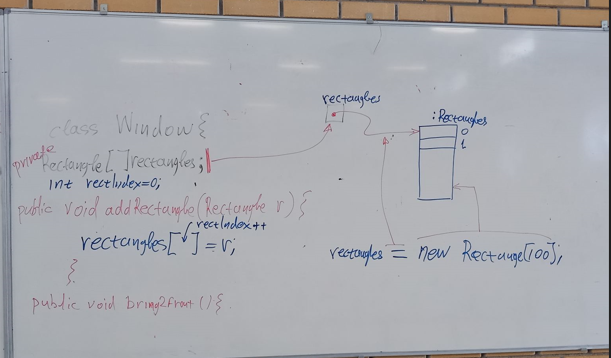 class Window{
private
Rectangle[]rectangles;
int rectIndex=0;
public void addRectangle(Rectangle r){
rectIndex++
rectangles[ ]=r;
}
public void bring2front(){
rectangles
:Rectangles
0
1
rectangles = new Rectange[100];